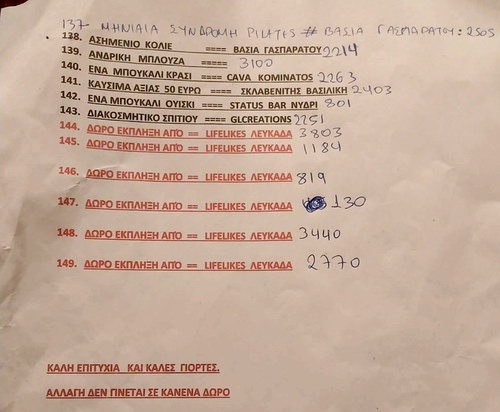 137 ΜΗΝΙΑΙΑ ΣΥΝΔΡΟΜΗ PILATES # ΒΑΣΙΑ ΓΑΣΠΑΡΑΤΟΥ: 2505
138. ΑΣΗΜΕΝΙΟ ΚΟΛΙΕ ==== ΒΑΣΙΑ ΓΑΣΠΑΡΑΤΟΥ 2214
139. ΑΝΔΡΙΚΗ ΜΠΛΟΥΖΑ ===== 3100
140. ΕΝΑ ΜΠΟΥΚΑΛΙ ΚΡΑΣΙ ==== CAVA KOMINATOS 2263
141. ΚΑΥΣΙΜΑ ΑΞΙΑΣ 50 ΕΥΡΟ ==== ΣΚΛΑΒΕΝΙΤΗΣ ΒΑΣΙΛΙΚΗ 2403
142. ΕΝΑ ΜΠΟΥΚΑΛΙ ΟΥΙΣΚΙ ==== STATUS BAR ΝΥΔΡΙ 801
143. ΔΙΑΚΟΣΜΗΤΙΚΟ ΣΠΙΤΙΟΥ ==== GLCREATIONS 2251
144. ΔΩΡΟ ΕΚΠΛΗΞΗ ΑΠΌ == LIFELIKES ΛΕΥΚΑΔΑ 3803
145. ΔΩΡΟ ΕΚΠΛΗΞΗ ΑΠΌ == LIFELIKES ΛΕΥΚΑΔΑ 1184
146. ΔΩΡΟ ΕΚΠΛΗΞΗ ΑΠΌ == LIFELIKES ΛΕΥΚΑΔΑ 819
147. ΔΩΡΟ ΕΚΠΛΗΞΗ ΑΠΌ == LIFELIKES ΛΕΥΚΑΔΑ 130
148. ΔΩΡΟ ΕΚΠΛΗΞΗ ΑΠΌ == LIFELIKES ΛΕΥΚΑΔΑ 3440
149. ΔΩΡΟ ΕΚΠΛΗΞΗ ΑΠΌ == LIFELIKES ΛΕΥΚΑΔΑ 2770
ΚΑΛΗ ΕΠΙΤΥΧΙΑ ΚΑΙ ΚΑΛΕΣ ΓΙΟΡΤΕΣ.
ΑΛΛΑΓΗ ΔΕΝ ΓΙΝΕΤΑΙ ΣΕ ΚΑΝΕΝΑ ΔΩΡΟ